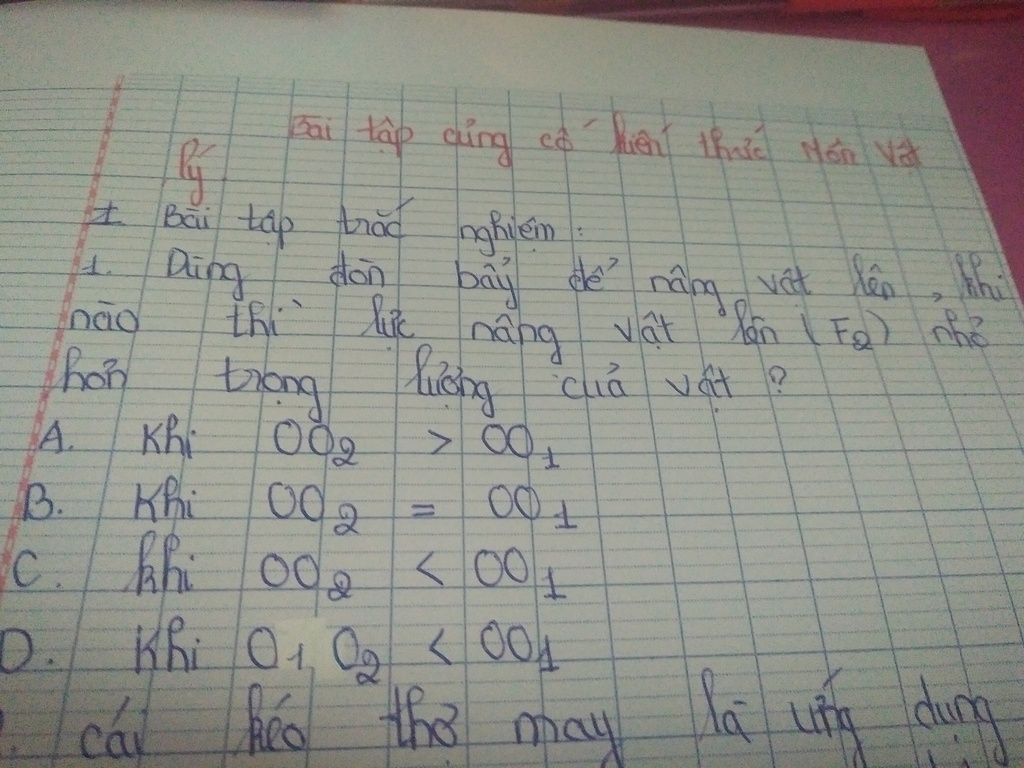 Bài tập củng cố kiến thức môn Vật
lý
I Bài tập trắc nghiệm:
1. Dùng đòn bẩy để nâng vật lên, khi
nào thì lực nâng vật lên (F2) nhỏ
hơn trọng lượng của vật?
A. Khi OO2 > OO1
B. Khi OO2 = OO1
C. khi OO2 < OO1
D. Khi O1O2 < OO1
cái kéo thợ may là ứng dụng